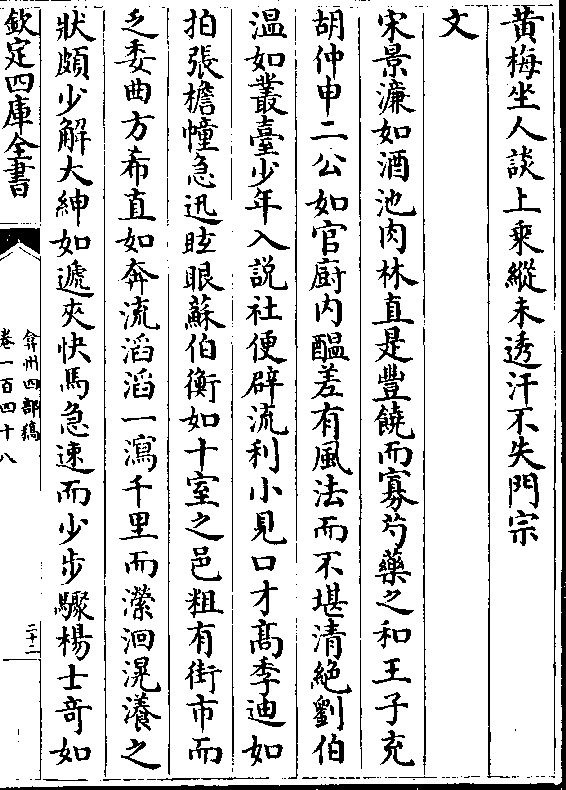 黄梅坐人談上乘縱未透汗不失門宗
文
宋景濂如酒池肉林直是豐饒而寡芍藥之和王子充
胡仲申二公如官廚内醖差有風法而不堪清絶劉伯
温如叢臺少年入説社便辟流利小見口才高季迪如
拍張檐幢急迅眩眼蘇伯衡如十室之邑粗有街市而
乏委曲方希直如奔流滔滔一瀉千里而瀠洄滉瀁之
狀頗少解大紳如遞夾快馬急速而少步驟楊士竒如
欽定四庫全書
弇州四部稿
卷一百四十八
二十二